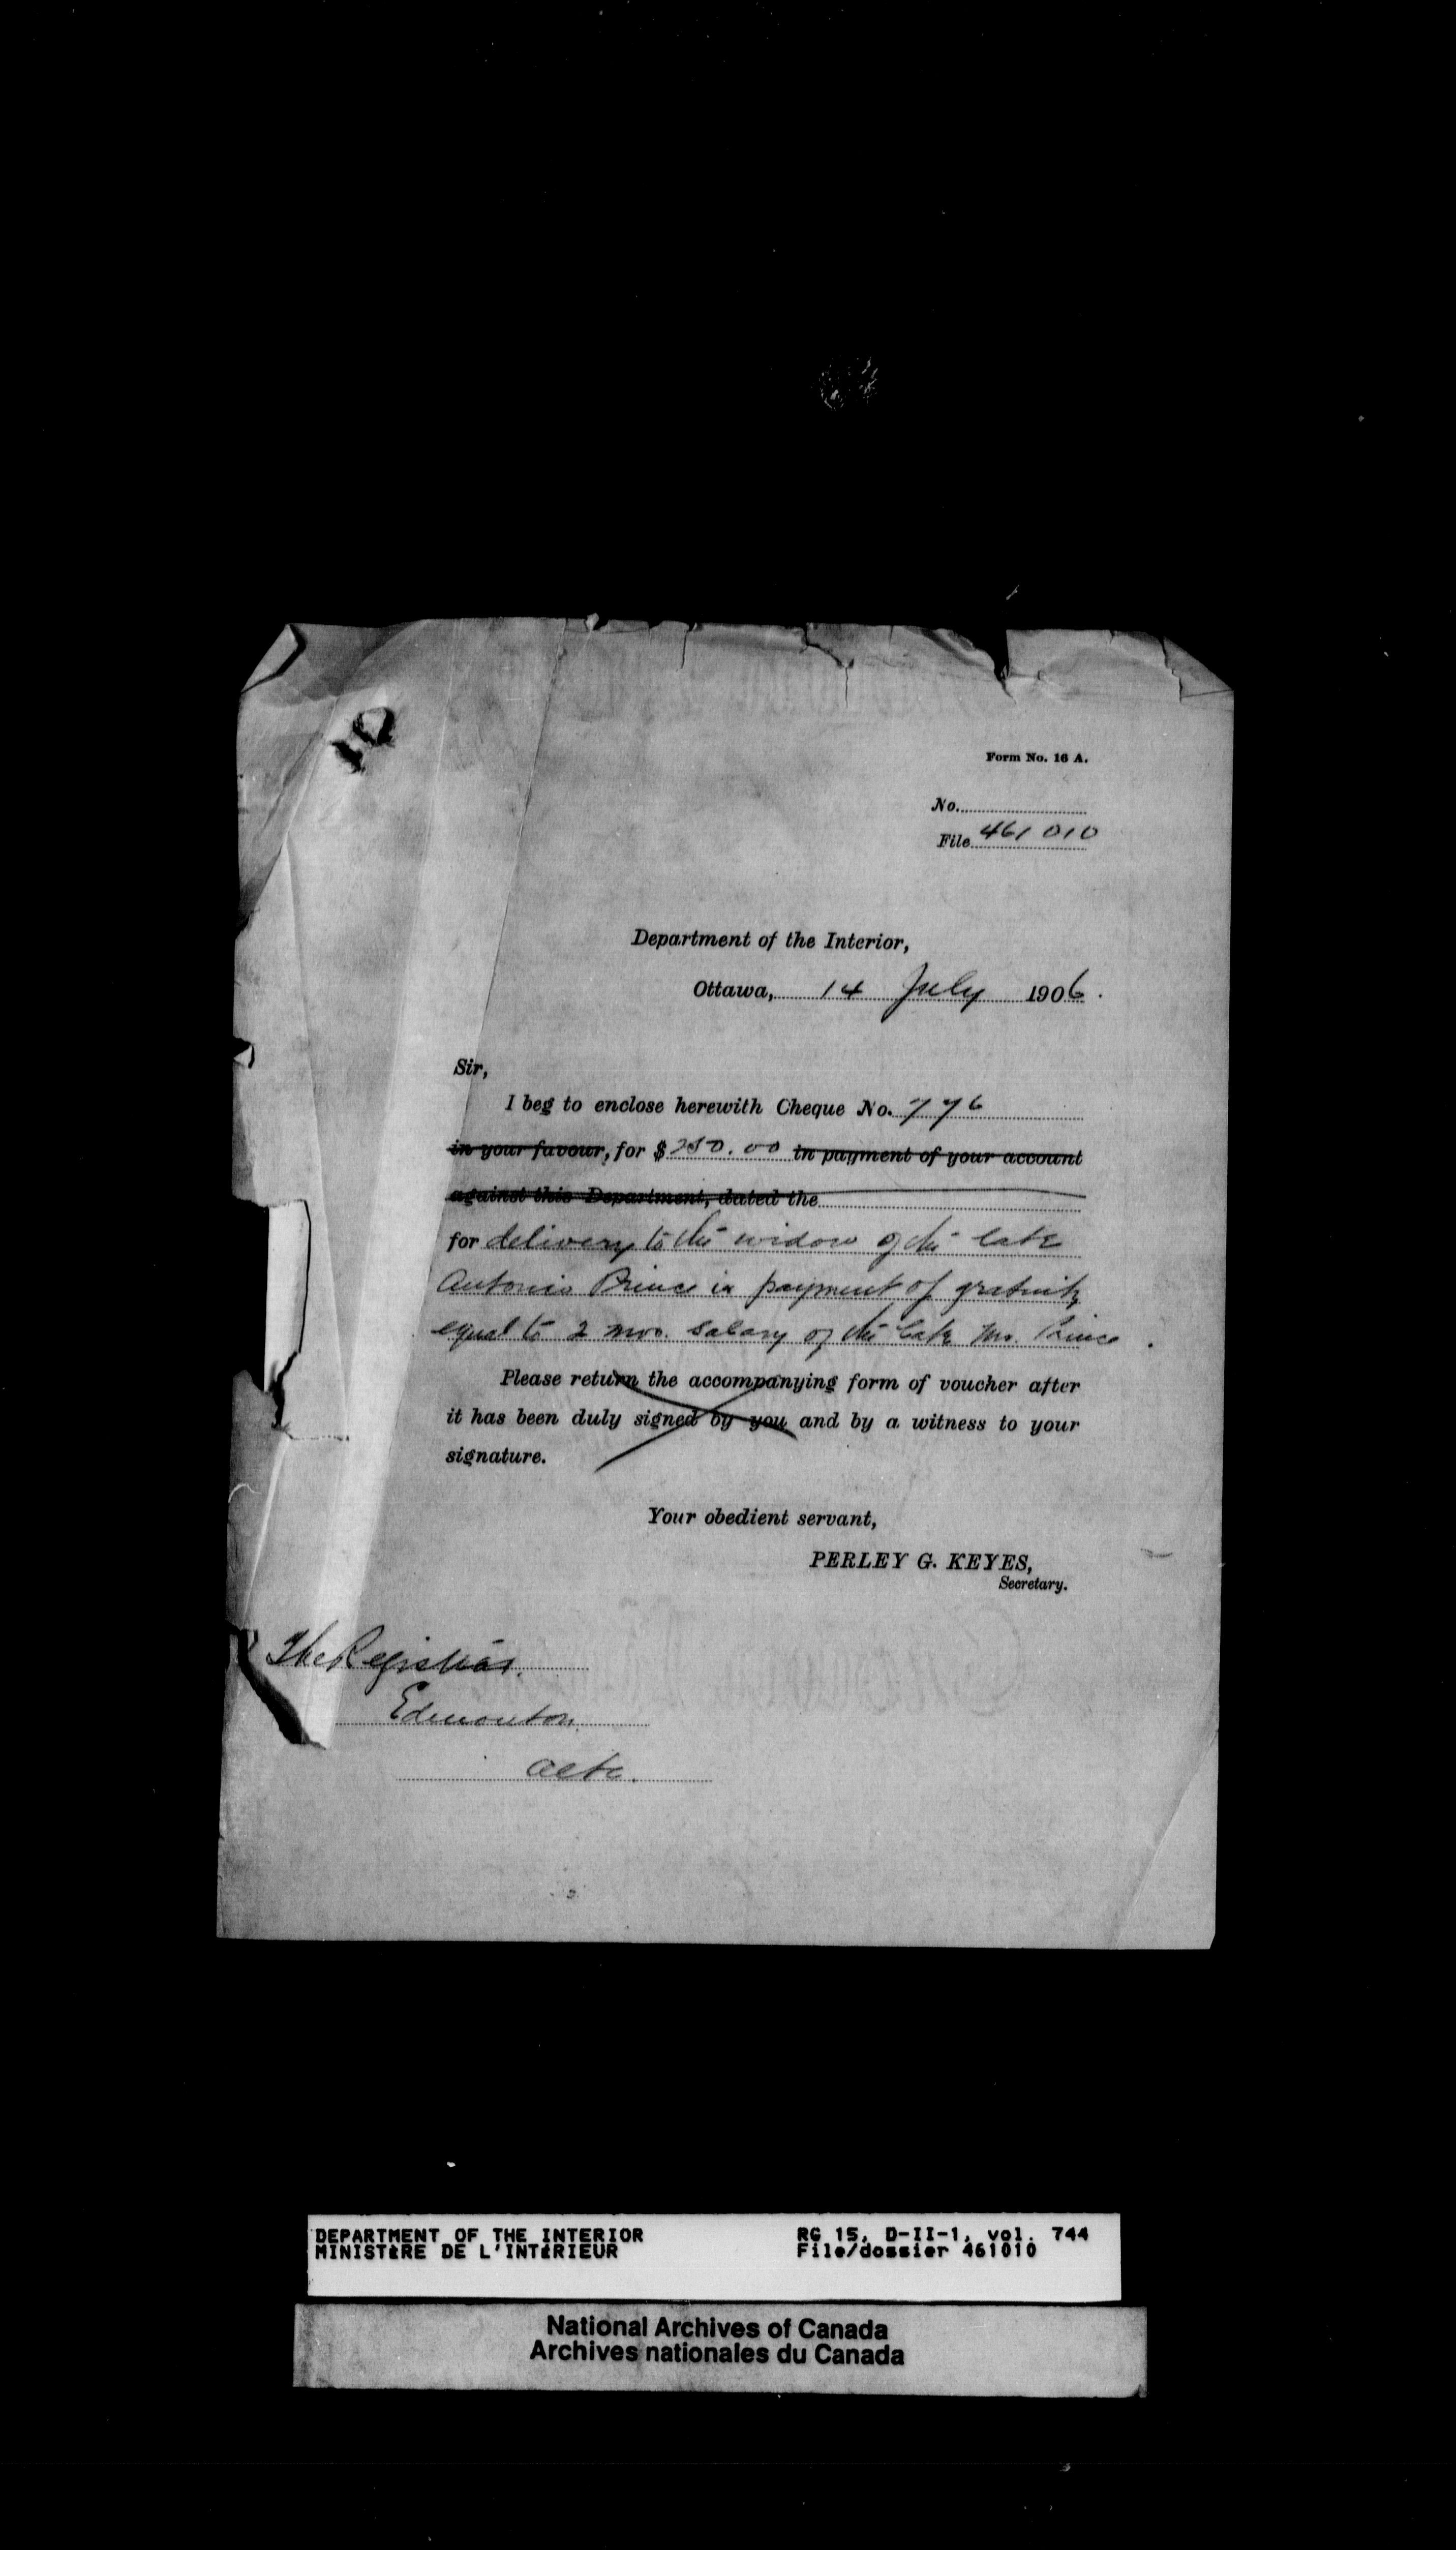 10
Form No. 16 A.
No.
File 461 010
Department of the Interior,
Ottawa, 14 July 1906.
Sir,
I beg to enclose herewith Cheque No. 776
in your favour, for $250.00 in payment of your account
against this Department, dated the
for delivery to the widow of the late
Antonio Prince in payment of gratuity
equal to 2 mos. salary of the late Mr. Prince.
Please return the accompanying form of voucher after
it has been duly signed by you and by a witness to your
signature.
Your obedient servant,
PERLEY G. KEYES,
Secretary.
The Registrar.
Edmonton.
Alta.
DEPARTMENT OF THE INTERIOR RG 15, D-II-1, vol. 744
MINISTÈRE DE L'INTÉRIEUR File/dossier 461010
National Archives of Canada
Archives nationales du Canada